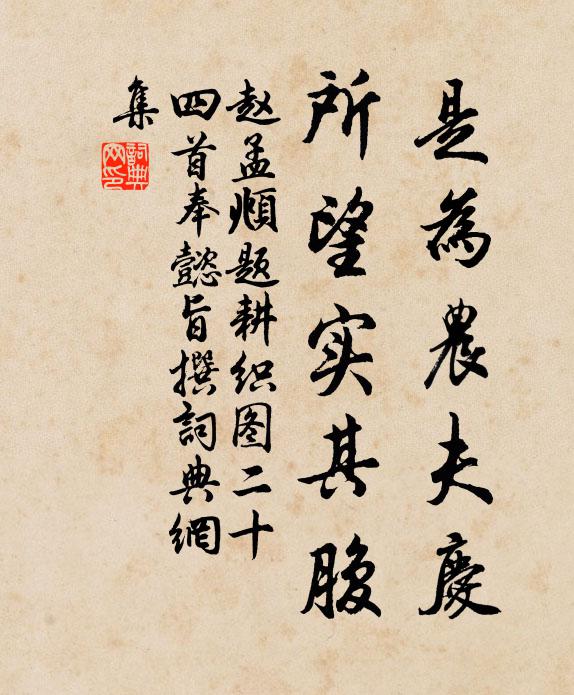 是為農夫慶
所望实其腹
赵孟頫题耕织图二十
四首奉懿旨撰詞典網
集
詞典
网印